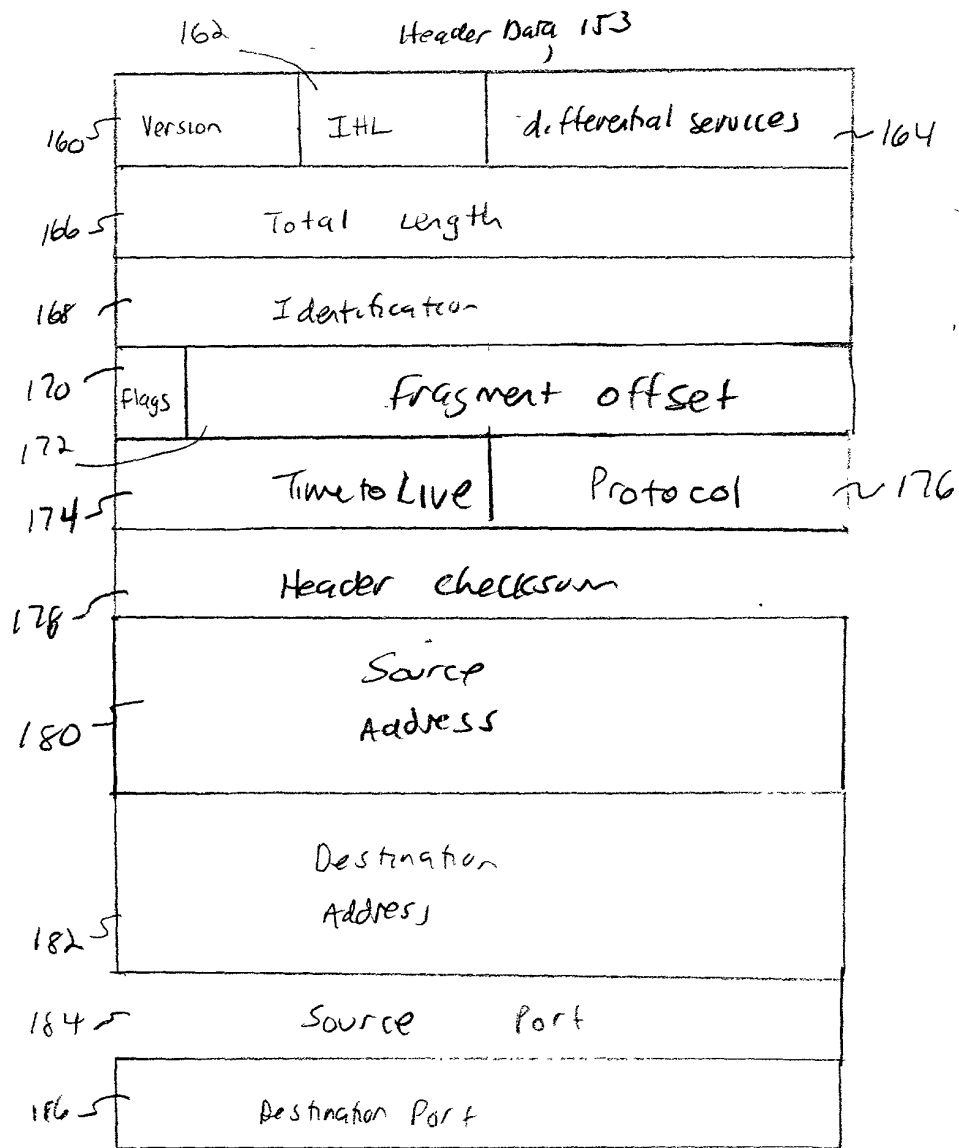 162 Header Data 153
160 Version IHL differential services 164
166 Total Length
168 Identification
170 Flags Fragment offset
172
174 Time to Live Protocol 176
Header checksum
178
Source
180 Address
Destination
Address
182
184 Source Port
186 Destination Port